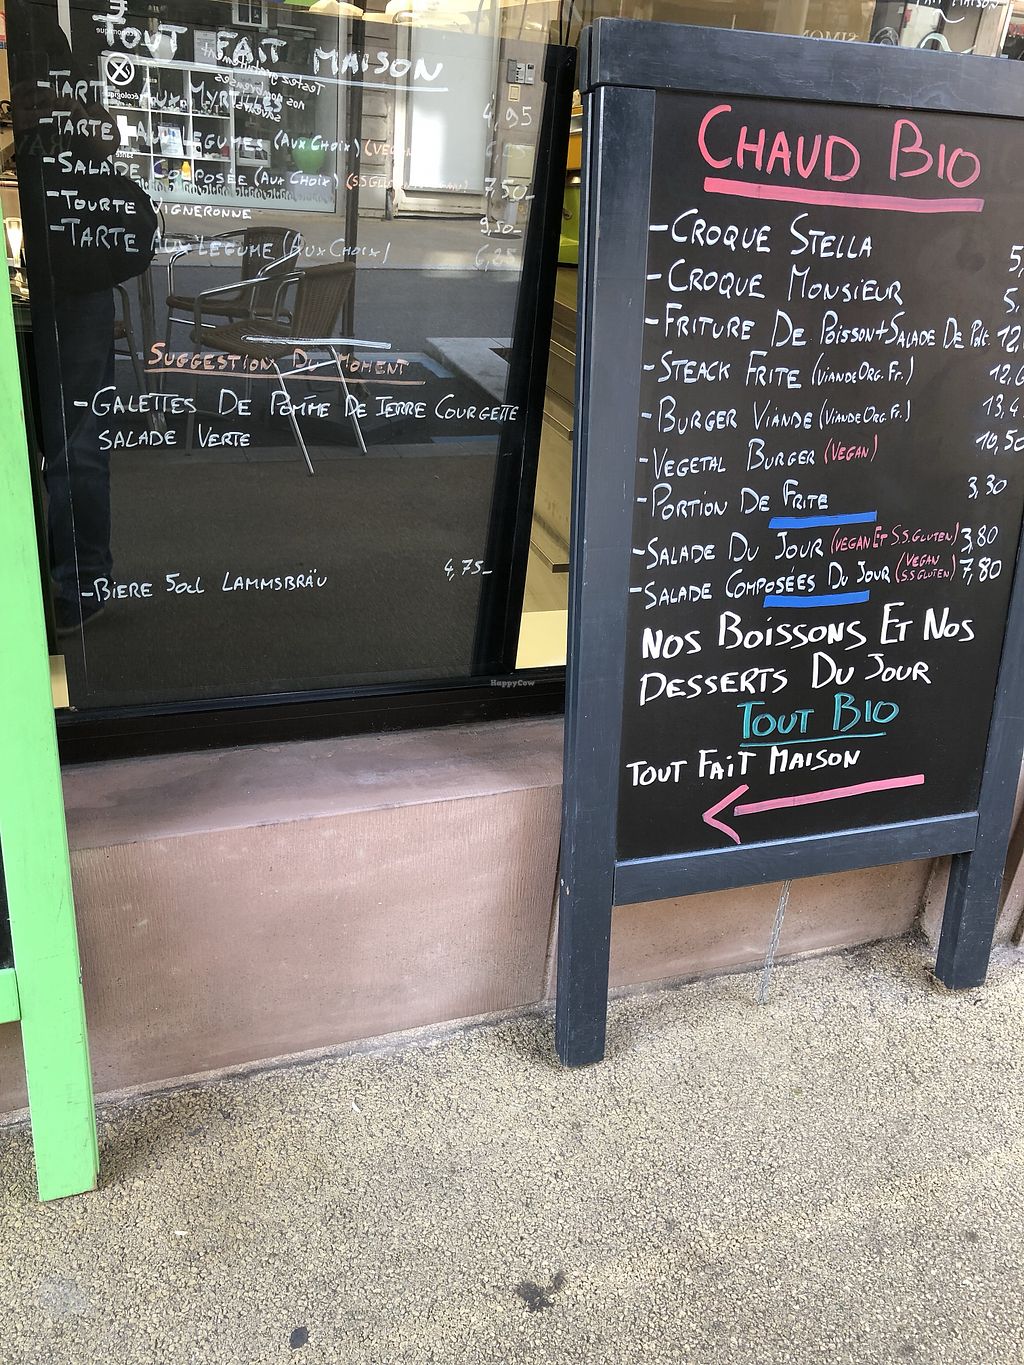 TOUT FAIT MAISON
-TARTE AUX MYRTILLES 4,95
-TARTE AUX LÉGUMES (AUX CHOIX) (VEGAN
-SALADE COMPOSÉE (AUX CHOIX) 7,50-
-TOURTE VIGNERONNE 9,50-
-TARTE AUX LÉGUME (AUX CHOIX) 6,25
SUGGESTION DU MOMENT
-GALETTES DE POMME DE TERRE COURGETTE
SALADE VERTE
-BIÈRE 50cl LAMMSBRÄU 4,75-
HappyCow
CHAUD BIO
-CROQUE STELLA 5,
-CROQUE MONSIEUR 5,
-FRITURE DE POISSON+SALADE DE 12,
-STEACK FRITE (VIANDE ORG. FR.) 12,
-BURGER VIANDE (VIANDE ORG. FR.) 13,4
-VEGETAL BURGER (VEGAN) 10,50
-PORTION DE FRITE 3,30
-SALADE DU JOUR (VEGAN ET S.S.GLUTEN) 3,80
-SALADE COMPOSÉES DU JOUR (VEGAN S.S GLUTEN) 7,80
NOS BOISSONS ET NOS
DESSERTS DU JOUR
TOUT BIO
TOUT FAIT MAISON